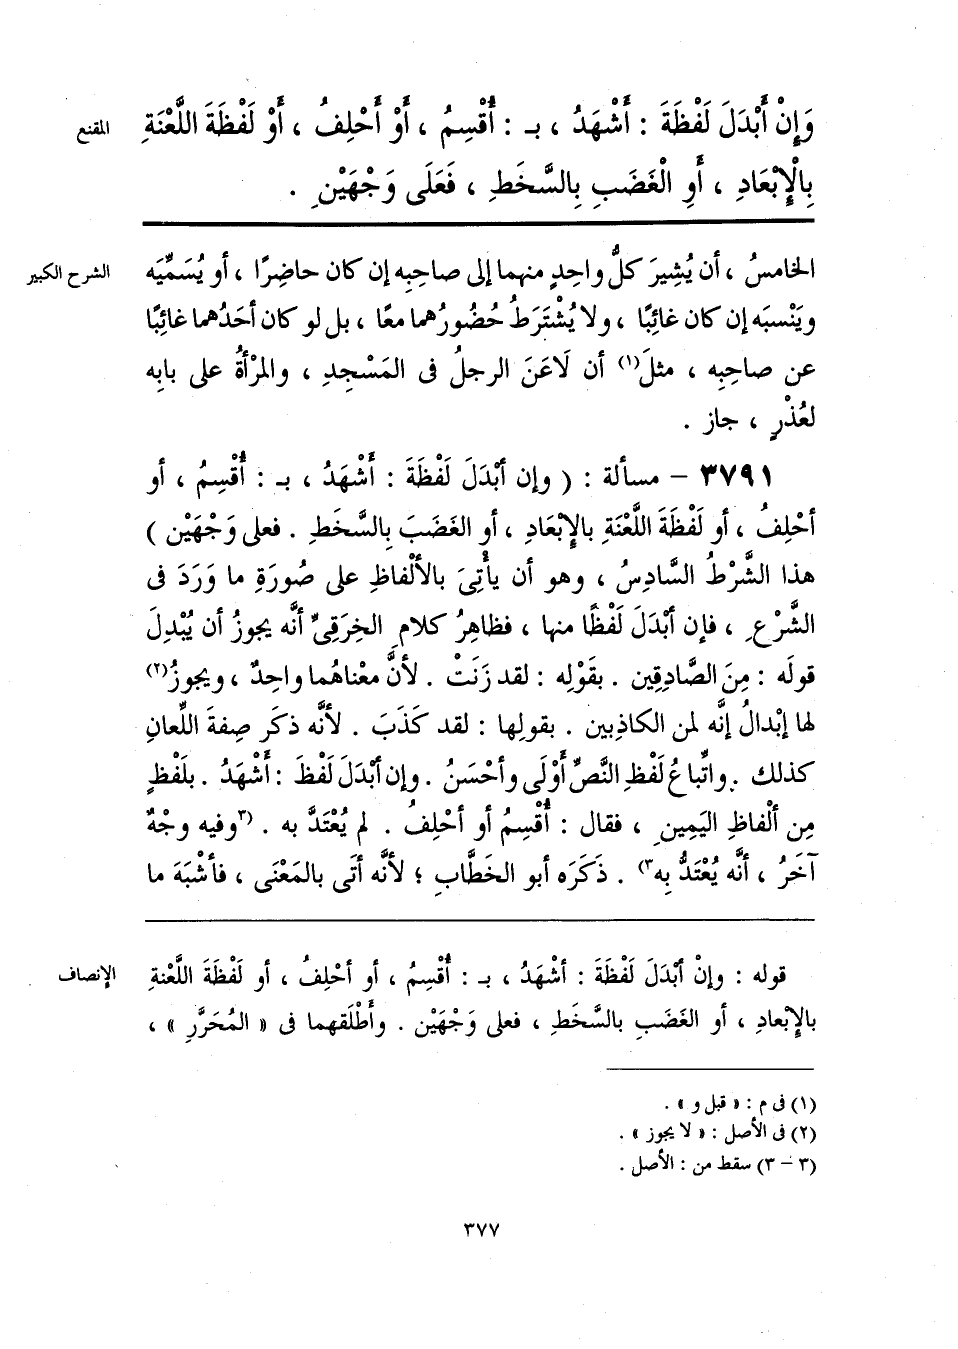 وَإِنْ أَبْدَلَ لَفْظَةَ : أَشْهَدُ ، بـ : أُقْسِمُ ، أَوْ أَحْلِفُ ، أَوْ لَفْظَةَ اللَّعْنَةِ
المقنع
بِالْإِبْعَادِ ، أَوِ الْغَضَبِ بِالسَّخَطِ ، فَعَلَى وَجْهَيْنِ .
الخامسُ ، أن يُشِيرَ كلُّ واحِدٍ منهما إلى صاحِبِه إن كان حاضِرًا ، أو يُسَمِّيَه
الشرح الكبير
ويَنْسبَه إن كان غائِبًا ، ولا يُشْتَرَطُ حُضُورُهما معًا ، بل لو كان أحَدُهما غائِبًا
عن صاحِبِه ، مثلَ(١) أن لَاعَنَ الرجلُ فى المَسْجِدِ ، والمرْأةُ على بابِه
لعُذْرٍ ، جاز .
٣٧٩١ – مسألة : ( وإن أبْدَلَ لَفْظَةَ : أَشْهَدُ ، بـ : أُقْسِمُ ، أو
أحْلِفُ ، أو لَفْظَةَ اللَّعْنَةِ بالإِبْعَادِ ، أو الغَضَبَ بِالسَّخَطِ . فعلى وَجْهَيْن )
هذا الشَّرْطُ السَّادِسُ ، وهو أن يأْتِىَ بالألْفاظِ على صُورَةِ ما وَرَدَ فى
الشَّرْعِ ، فإن أبْدَلَ لَفْظًا منها ، فظاهِرُ كلامِ الخِرَقِىِّ أنَّه يجوزُ أن يُبْدِلَ
قولَه : مِنَ الصَّادِقِين . بقَوْلِه : لقد زَنَتْ . لأنَّ معْناهُما واحِدٌ ، ويجوزُ(٢)
لها إبْدالُ إنَّه لمن الكاذِبِين . بقولِها : لقد كَذَبَ . لأنَّه ذكَر صِفةَ اللِّعانِ
كذلك . واتِّباعُ لَفْظِ النَّصِّ أَوْلَى وأحْسَنُ . وإن أبْدَلَ لَفْظَ : أَشْهَدُ . بلَفْظٍ
مِن ألْفاظِ اليَمِينِ ، فقال : أُقْسِمُ أو أحْلِفُ . لم يُعْتَدَّ به . (٣وفيه وجْهٌ
آخَرُ ، أنَّه يُعْتَدُّ بِه٣) . ذَكَرَه أبو الخَطَّابِ ؛ لأنَّه أتَى بالمَعْنَى ، فأشْبَهَ ما
قوله : وإنْ أبْدَلَ لَفْظَةَ : أشْهَدُ ، بـ : أُقْسِمُ ، أو أحْلِفُ ، أو لَفْظَةَ اللَّعْنةِ
الإنصاف
بالإِبْعادِ ، أو الغَضَبِ بالسَّخَطِ ، فعلى وَجْهَيْن . وأَطْلَقهما فى « المُحَرَّرِ » ،
(١) فى م : « قبل و » .
(٢) فى الأصل : « لا يجوز » .
(٣ – ٣) سقط من : الأصل .
٣٧٧